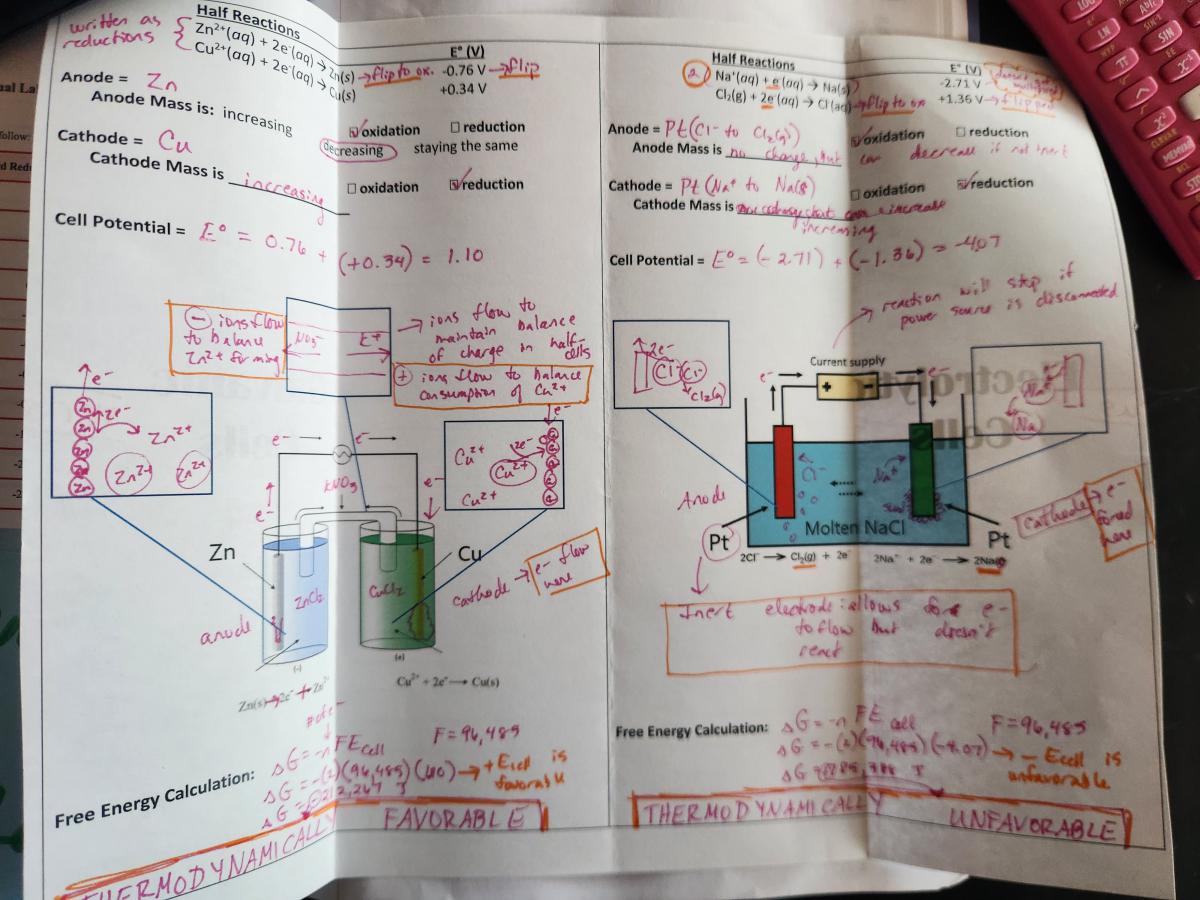 written as
reductions
Half Reactions
E° (V)
Zn²⁺(aq) + 2e⁻(aq) → Zn(s) → flip to ox. -0.76 V → flip
Cu²⁺(aq) + 2e⁻(aq) → Cu(s) +0.34 V
Anode = Zn
oxidation reduction
Anode Mass is: increasing decreasing staying the same
Cathode = Cu
oxidation reduction
Cathode Mass is increasing
Cell Potential = E° = 0.76 + (+0.34) = 1.10
⊖ ions flow
to balance
Zn²⁺ forming
NO₃⁻
K⁺
→ ions flow to
maintain balance
of charge in half-
cells
⊕ ions flow to balance
consumption of Cu²⁺
e⁻
Zn
Zn
Zn
2e⁻
Zn²⁺
Zn²⁺ Zn²⁺
e⁻
Cu²⁺
2e⁻
Cu²⁺
Cu²⁺
e⁻ → e⁻ →
KNO₃
e⁻
e⁻
Zn
Cu
ZnCl₂
CuCl₂
anode
cathode → e⁻ flow
here
(-)
Zn(s) → 2e⁻ + Zn²⁺
Cu²⁺ + 2e⁻ → Cu(s)
# of e⁻
Free Energy Calculation: ΔG = -nFEcell F = 96,485
ΔG = -(2)(96,485)(1.10) → + Ecell is
favorable
ΔG = -212,267 J
THERMODYNAMICALLY FAVORABLE
Half Reactions
E° (V)
2 Na⁺(aq) + e⁻(aq) → Na(s) -2.71 V
Cl₂(g) + 2e⁻(aq) → Cl⁻(aq) → flip to ox +1.36 V → flipped
Anode = Pt (Cl⁻ to Cl₂(g))
oxidation reduction
Anode Mass is no change, but can decrease if not inert
Cathode = Pt (Na⁺ to Na(s))
oxidation reduction
Cathode Mass is increase
increasing
Cell Potential = E° = (-2.71) + (-1.36) = -4.07
→ reaction will stop if
power source is disconnected
2e⁻
Cl⁻ Cl⁻
Cl₂(g)
Current supply
+ -
e⁻
e⁻
Na⁺
Na
Cl⁻
Na⁺
Anode
Pt
Molten NaCl
Pt
cathode → e⁻
forced
here
2Cl⁻ → Cl₂(g) + 2e⁻
2Na⁺ + 2e⁻ → 2Na(s)
Inert electrode: allows for e⁻
to flow but doesn't
react
Free Energy Calculation: ΔG = -nFEcell F = 96,485
ΔG = -(2)(96,485)(-4.07) → - Ecell is
unfavorable
THERMODYNAMICALLY UNFAVORABLE
LOG
LN
π
SIN